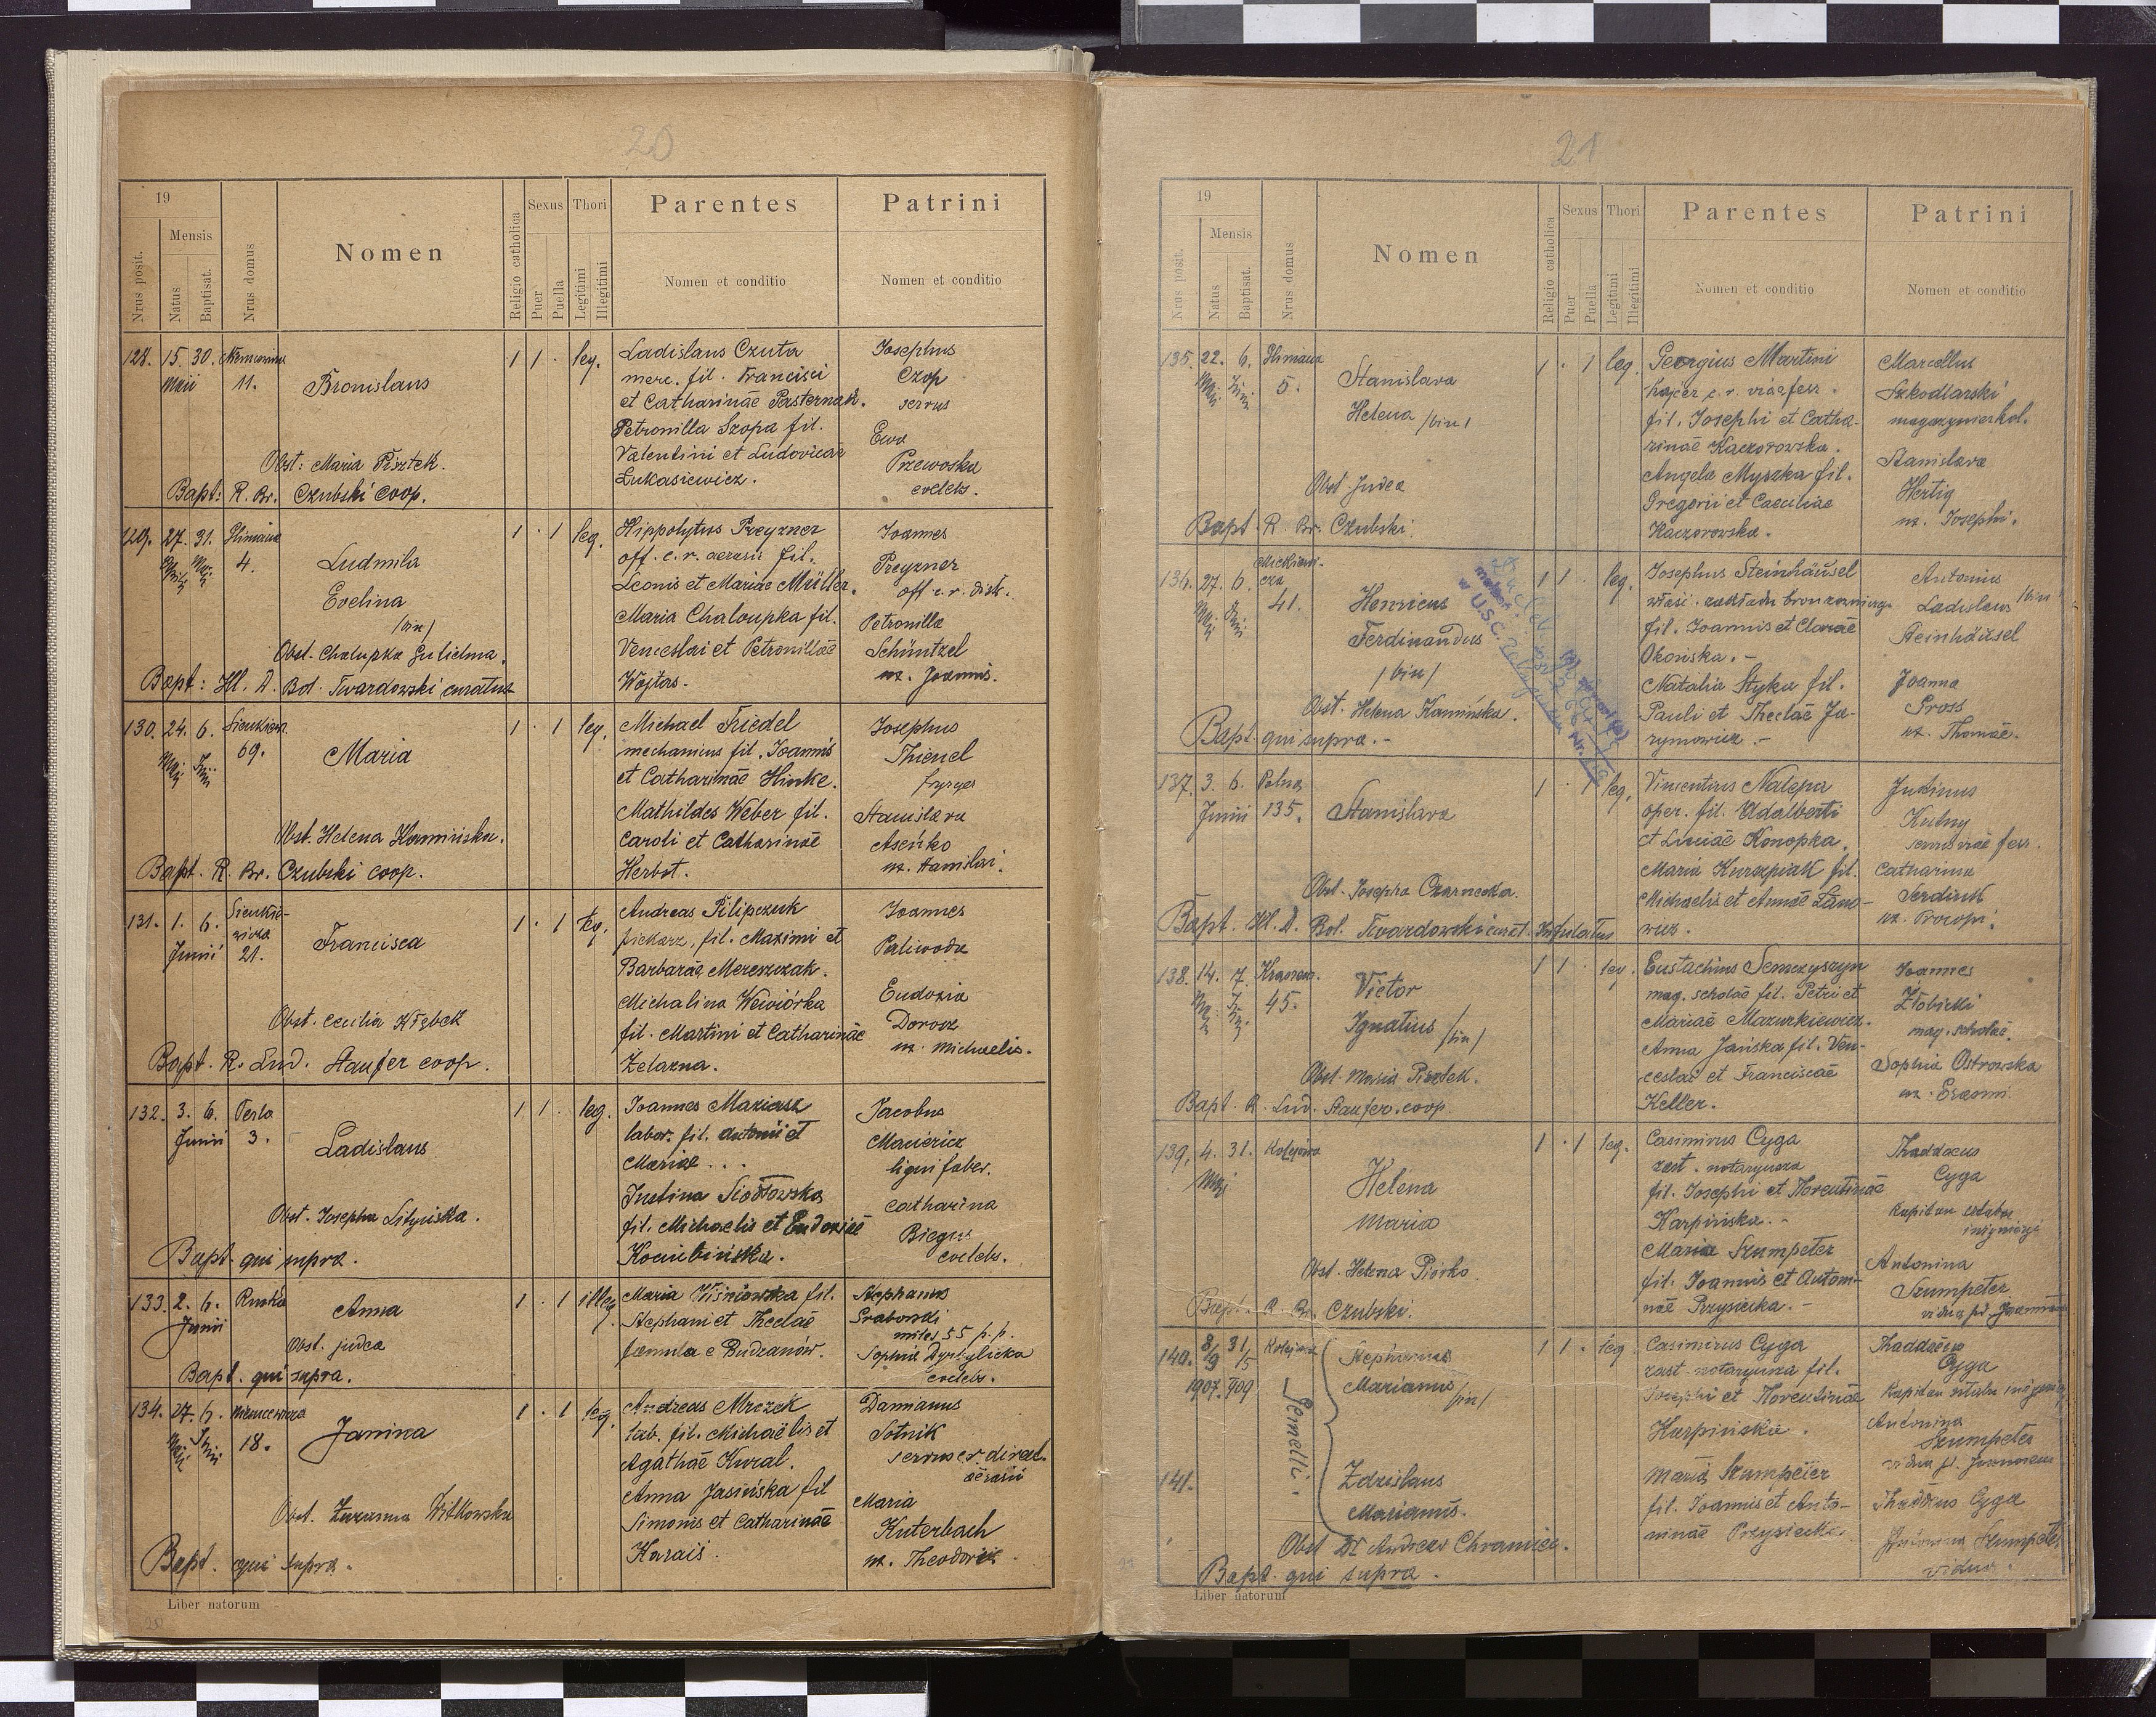 20
19
Nrus posit.
Mensis
Natus
Baptisat.
Nrus domus
Nomen
Religio catholica
Sexus
Puer
Puella
Thori
Legitimi
Illegitimi
Parentes
Nomen et conditio
Patrini
Nomen et conditio
128. 15. 30.
Maii 11.
Bronislaus
1 1 · leg.
Obst: Maria Pisztek.
Bapt: R. Br. Czubski coop.
Ladislaus Czuta
merc. fil. Francisci
et Catharinae Pasternak.
Petronilla Szopa fil.
Valentini et Ludovicae
Lukasiewicz.
Josephus
Czop
servus
Ewa
Przewoska
coelebs.
129. 27. 31. Gliniana
4.
Ludmila
Evelina
/bin/
1 · 1 leg.
Obst. Chalupka Gulielma.
Bapt: Kl. A. Bol. Twardowski curatus
Hippolytus Preyzner
off. c. r. aerarii fil.
Leonis et Mariae Müller.
Maria Chaloupka fil.
Venceslai et Petronillae
Wojtas.
Joannes
Preyzner
off. c. r. distr.
Petronilla
Schüntzel
ux. Joannis.
130. 24. 6. Sienkiew.
69.
Maria
1 · 1 leg.
Obst. Helena Kamińska.
Bapt. R. Br. Czubski coop.
Michael Friedel
mechanicus fil. Joannis
et Catharinae Hinke.
Mathildes Weber fil.
Caroli et Catharinae
Herbst.
Josephus
Thienel
fryzyer
Stanislava
Aseńko
ux. Stanislai.
131. 1. 6. Sienkie-
wicza
Junii 21.
Francisca
1 · 1 leg.
Obst. Cecilia Kłębek
Bapt. R. Lud. Staufer coop.
Andreas Pilipczuk
piekarz, fil. Maximi et
Barbarae Mereszczak.
Michalina Wewiórka
fil. Martini et Catharinae
Żelazna.
Joannes
Paliwoda
Eudoxia
Dorosz
ux. Michaelis.
132. 3. 6. Perla
Junii 3.
Ladislaus
1 1 · leg.
Obst. Josepha Lityńska.
Bapt. qui supra.
Joannes Maziarz
labor. fil. Antonii et
Mariae . . .
Justina Siodłowska
fil. Michaelis et Eudoxiae
Kociubińska.
Jacobus
Maciericz
ligni faber.
Catharina
Biegus
coelebs.
133. 2. 6. Ruska
Junii
Anna
1 · 1 illeg.
Obst. judea
Bapt. qui supra.
Maria Wiśniowska fil.
Stephani et Theclae
famula e Budzanów.
Stephanus
Grabowski
miles 55 p. p.
Sophia Dyrbylicka
coelebs.
134. 27. 6. Niemcewicza
18.
Janina
1 · 1 leg.
Obst. Zuzanna Witkowska
Bapt. qui supra.
Andreas Mrozek
lab. fil. Michaëlis et
Agathae Kural.
Anna Jasińska fil
Simonis et Catharinae
Karaś.
Damianus
Sotnik
servus c. r. direct.
aerarii
Maria
Kuterbach
ux. Theodori
Liber natorum
21
19
Nrus posit.
Mensis
Natus
Baptisat.
Nrus domus
Nomen
Religio catholica
Sexus
Puer
Puella
Thori
Legitimi
Illegitimi
Parentes
Nomen et conditio
Patrini
Nomen et conditio
135. 22. 6. Gliniana
5.
Stanislava
Helena /bin/
1 · 1 leg.
Obst. Judea
Bapt. R. Br. Czubski.
Georgius Martini
hajcer c. r. viae ferr.
fil. Josephi et Catha-
rinae Kaczorowska.
Angela Myszka fil.
Gregorii et Caeciliae
Kaczorowska.
Marcellus
Szkodlarski
magazynier kol.
Stanislava
Hertig
ux. Josephi.
136. 27. 6. Mickiewi-
cza
41.
Henricus
Ferdinandus
/bin/
1 1 · leg.
Obst. Helena Kamińska.
Bapt. qui supra.-
Josephus Steinhäusel
właśc. zakładu bronzowniczego
fil. Joannis et Clarae
Okońska.-
Natalia Styka fil.
Pauli et Theclae Ja-
rymowicz.-
Antonius
Ladislaus /bin/
Steinhäusel
Joanna
Gross
ux. Thomae.
137. 3. 6. Polna
Junii 135.
Stanislava
1 · 1 leg.
Obst. Josepha Czarnecka.
Bapt. Kl. A. Bol. Twardowski curat. Infulatus
Vincentius Nalepa
oper. fil. Adalberti
et Luciae Konopka.
Maria Kurzepiak fil.
Michaelis et Annae Lano-
wicz.
Justinus
Kutny
servus viae ferr.
Catharina
Serdiuk
ux. Procopii
138. 14. 7.
45.
Victor
Ignatius /bin/
1 1 · leg.
Obst. Maria Pisztek.
Bapt. R. Lud. Staufer. coop
Eustachius Semczyszyn
mag. scholae fil. Petri et
Mariae Mazurkiewicz.
Anna Jańska fil. Ven-
ceslai et Franciscae
Keller.
Joannes
Złobicki
mag. scholae.
Sophia Ostrowska
ux. Erasmi.
139. 4. 31. Kolejowa
Helena
Maria
1 · 1 leg.
Obst. Helena Piórko.
Bapt. R. Br. Czubski.
Casimirus Cyga
zast. notaryusza
fil. Josephi et Florentinae
Karpińska.-
Maria Szumpeter
fil. Joannis et Antoni-
nae Przysiecka.-
Thaddaeus
Cyga
Kapitan sztabu
inżynieryi
Antonina
Szumpeter
vidua p. Joannem
140. 8/9 31/5 Kolejowa
1907. 909
Stephanus
Marianus /bin/
Gemelli.
1 1 · leg
141.
Zdzislaus
Marianus.
Obst Dr Andreas Chramiec.
Bapt. qui supra.
Casimirus Cyga
zast. notaryusza fil.
Josephi et Florentinae
Karpińska.
Maria Szumpeter
fil. Joannis et Anto-
ninae Przysiecka.
Thaddaeus
Cyga
Kapitan sztabu inżynier
Antonina
Szumpeter
vidua p. Joannem
Thaddaeus Cyga
Antonina Szumpeter
vidua.
Liber natorum